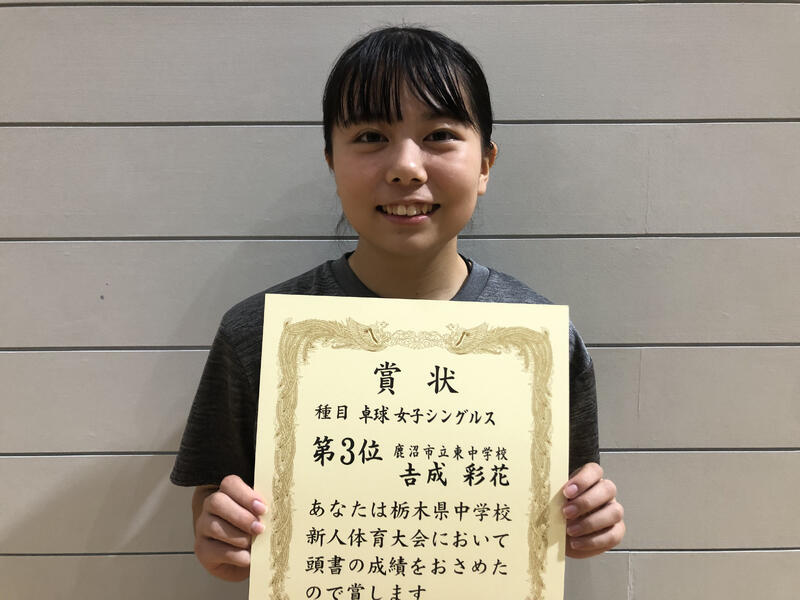 賞状
種目 卓球 女子シングルス
第3位 鹿沼市立東中学校
𠮷成 彩花
あなたは栃木県中学校
新人体育大会において
頭書の成績をおさめた
ので賞します